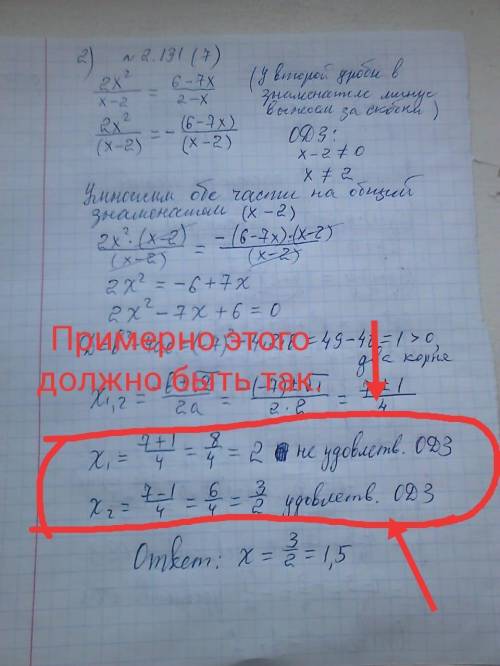 2) №2.131 (7)
2x²/(x-2) = (6-7x)/(2-x) (у второй дроби в
знаменателе минус
выносим за скобки)
2x²/(x-2) = -(6-7x)/(x-2) ОДЗ:
x-2≠0
x≠2
Умножим обе части на общий
знаменатель (x-2)
2x²·(x-2)/(x-2) = -(6-7x)·(x-2)/(x-2)
2x² = -6+7x
2x²-7x+6=0
=49-48=1>0,
два корня
Примерно этого
должно быть так
x₁,₂ = /2a = /2·2 = /4
x₁ = (7+1)/4 = 8/4 = 2 не удовлетв. ОДЗ
x₂ = (7-1)/4 = 6/4 = 3/2 удовлетв. ОДЗ
Ответ: x = 3/2 = 1,5